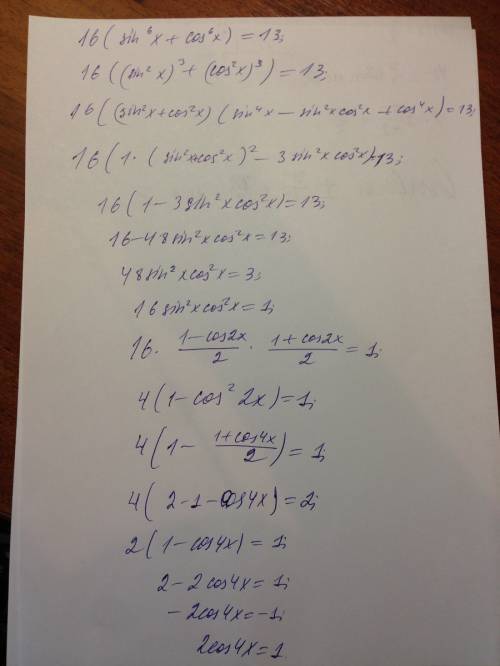 16(sin⁶x + cos⁶x) = 13;
16((sin²x)³ + (cos²x)³) = 13;
16((sin²x+cos²x)(sin⁴x − sin²xcos²x + cos⁴x)=13;
16(1·(sin²x+cos²x)² − 3sin²xcos²x)=13;
16(1−3sin²xcos²x)=13;
16−48sin²xcos²x=13;
48sin²xcos²x=3;
16sin²xcos²x=1;
16· (1−cos2x)/2 · (1+cos2x)/2 = 1;
4(1−cos²2x)=1;
4(1− (1+cos4x)/2)=1;
4(2−1−cos4x)=2;
2(1−cos4x)=1;
2−2cos4x=1;
−2cos4x=−1;
2cos4x=1